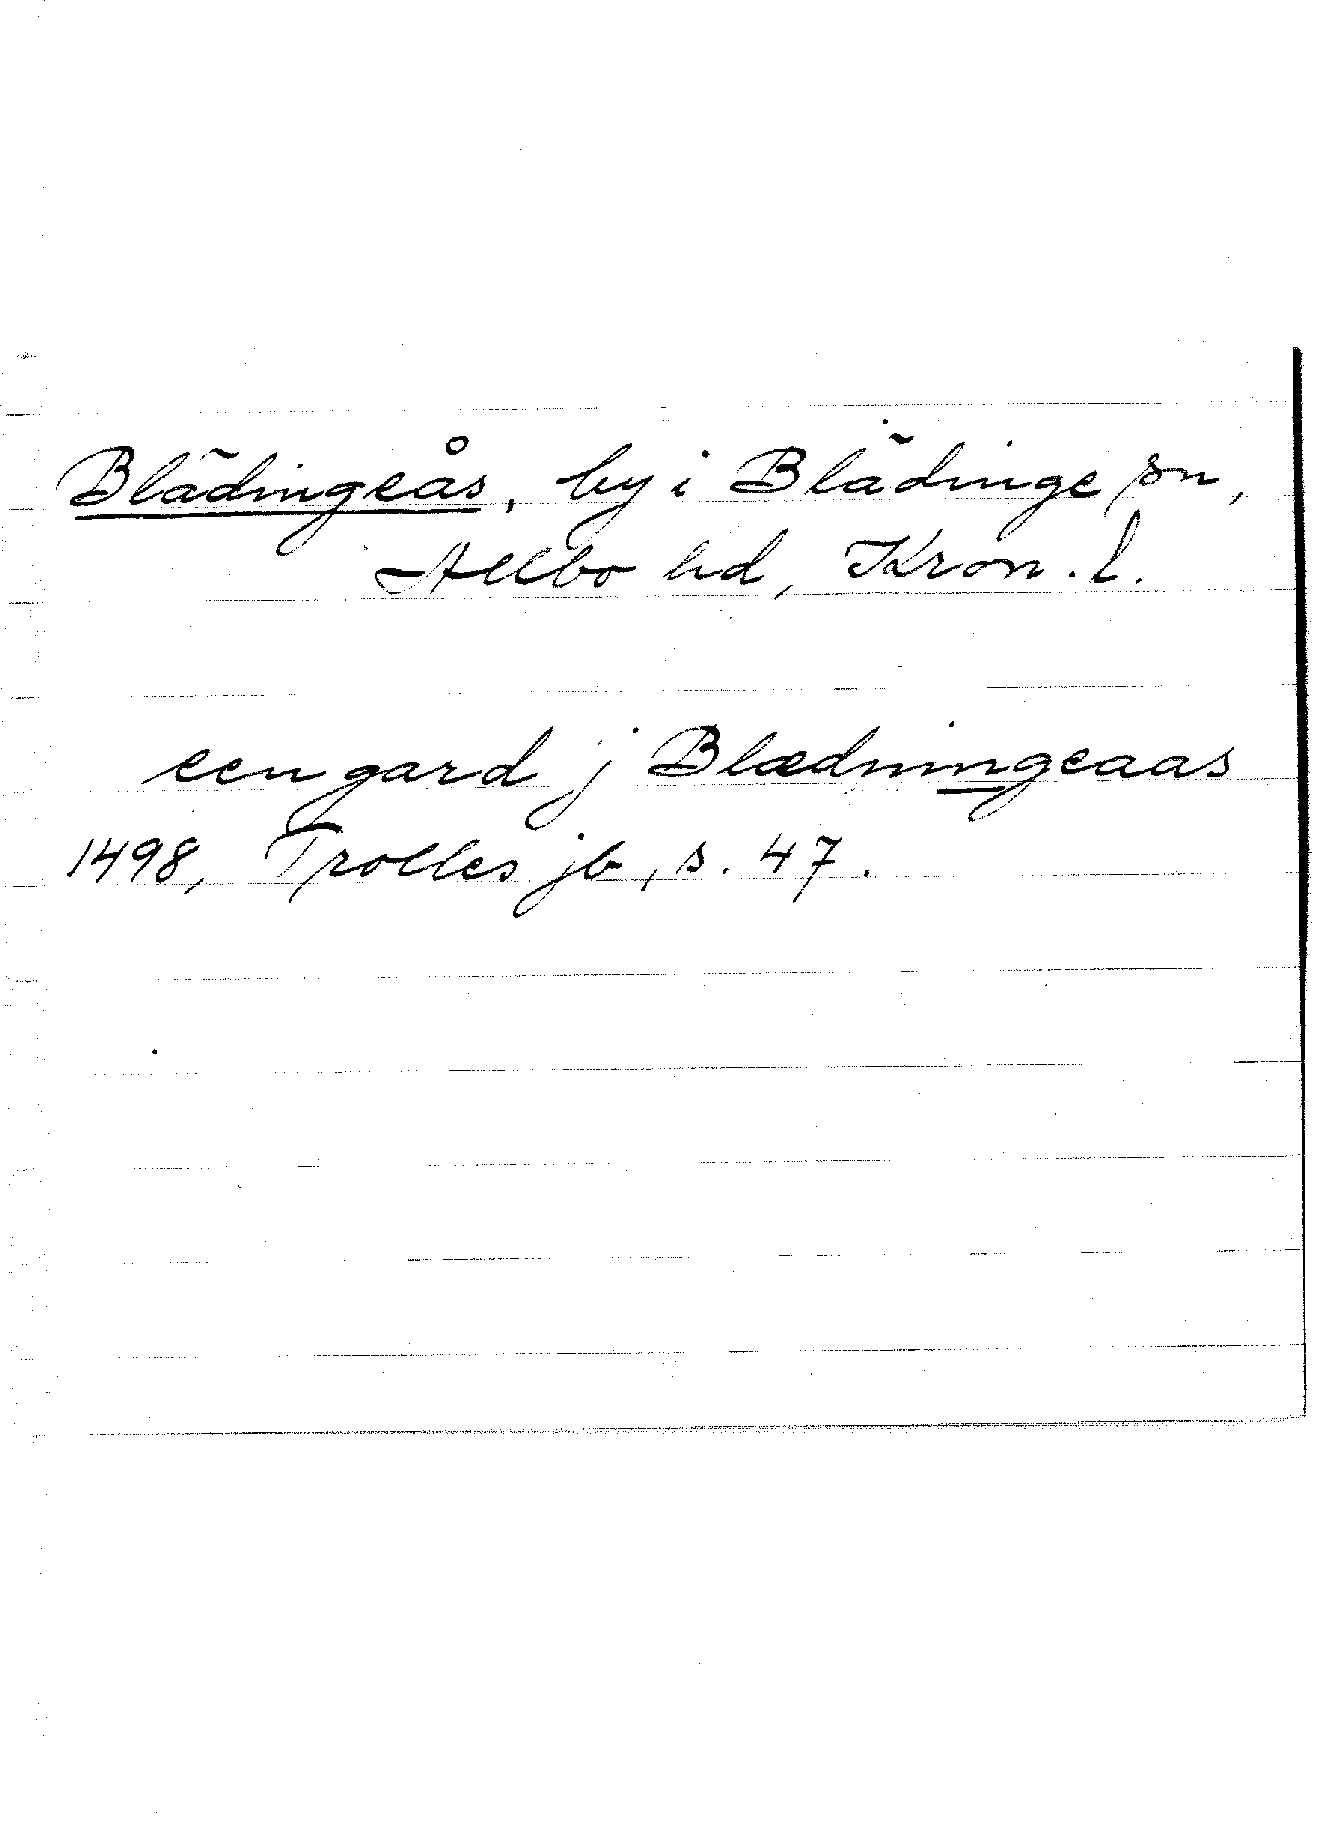 Blädingeås, by i Blädinge sn,
Allbo hd, Kron. l.
een gard j Blædningeaas
1498, Trolles jb, s. 47.